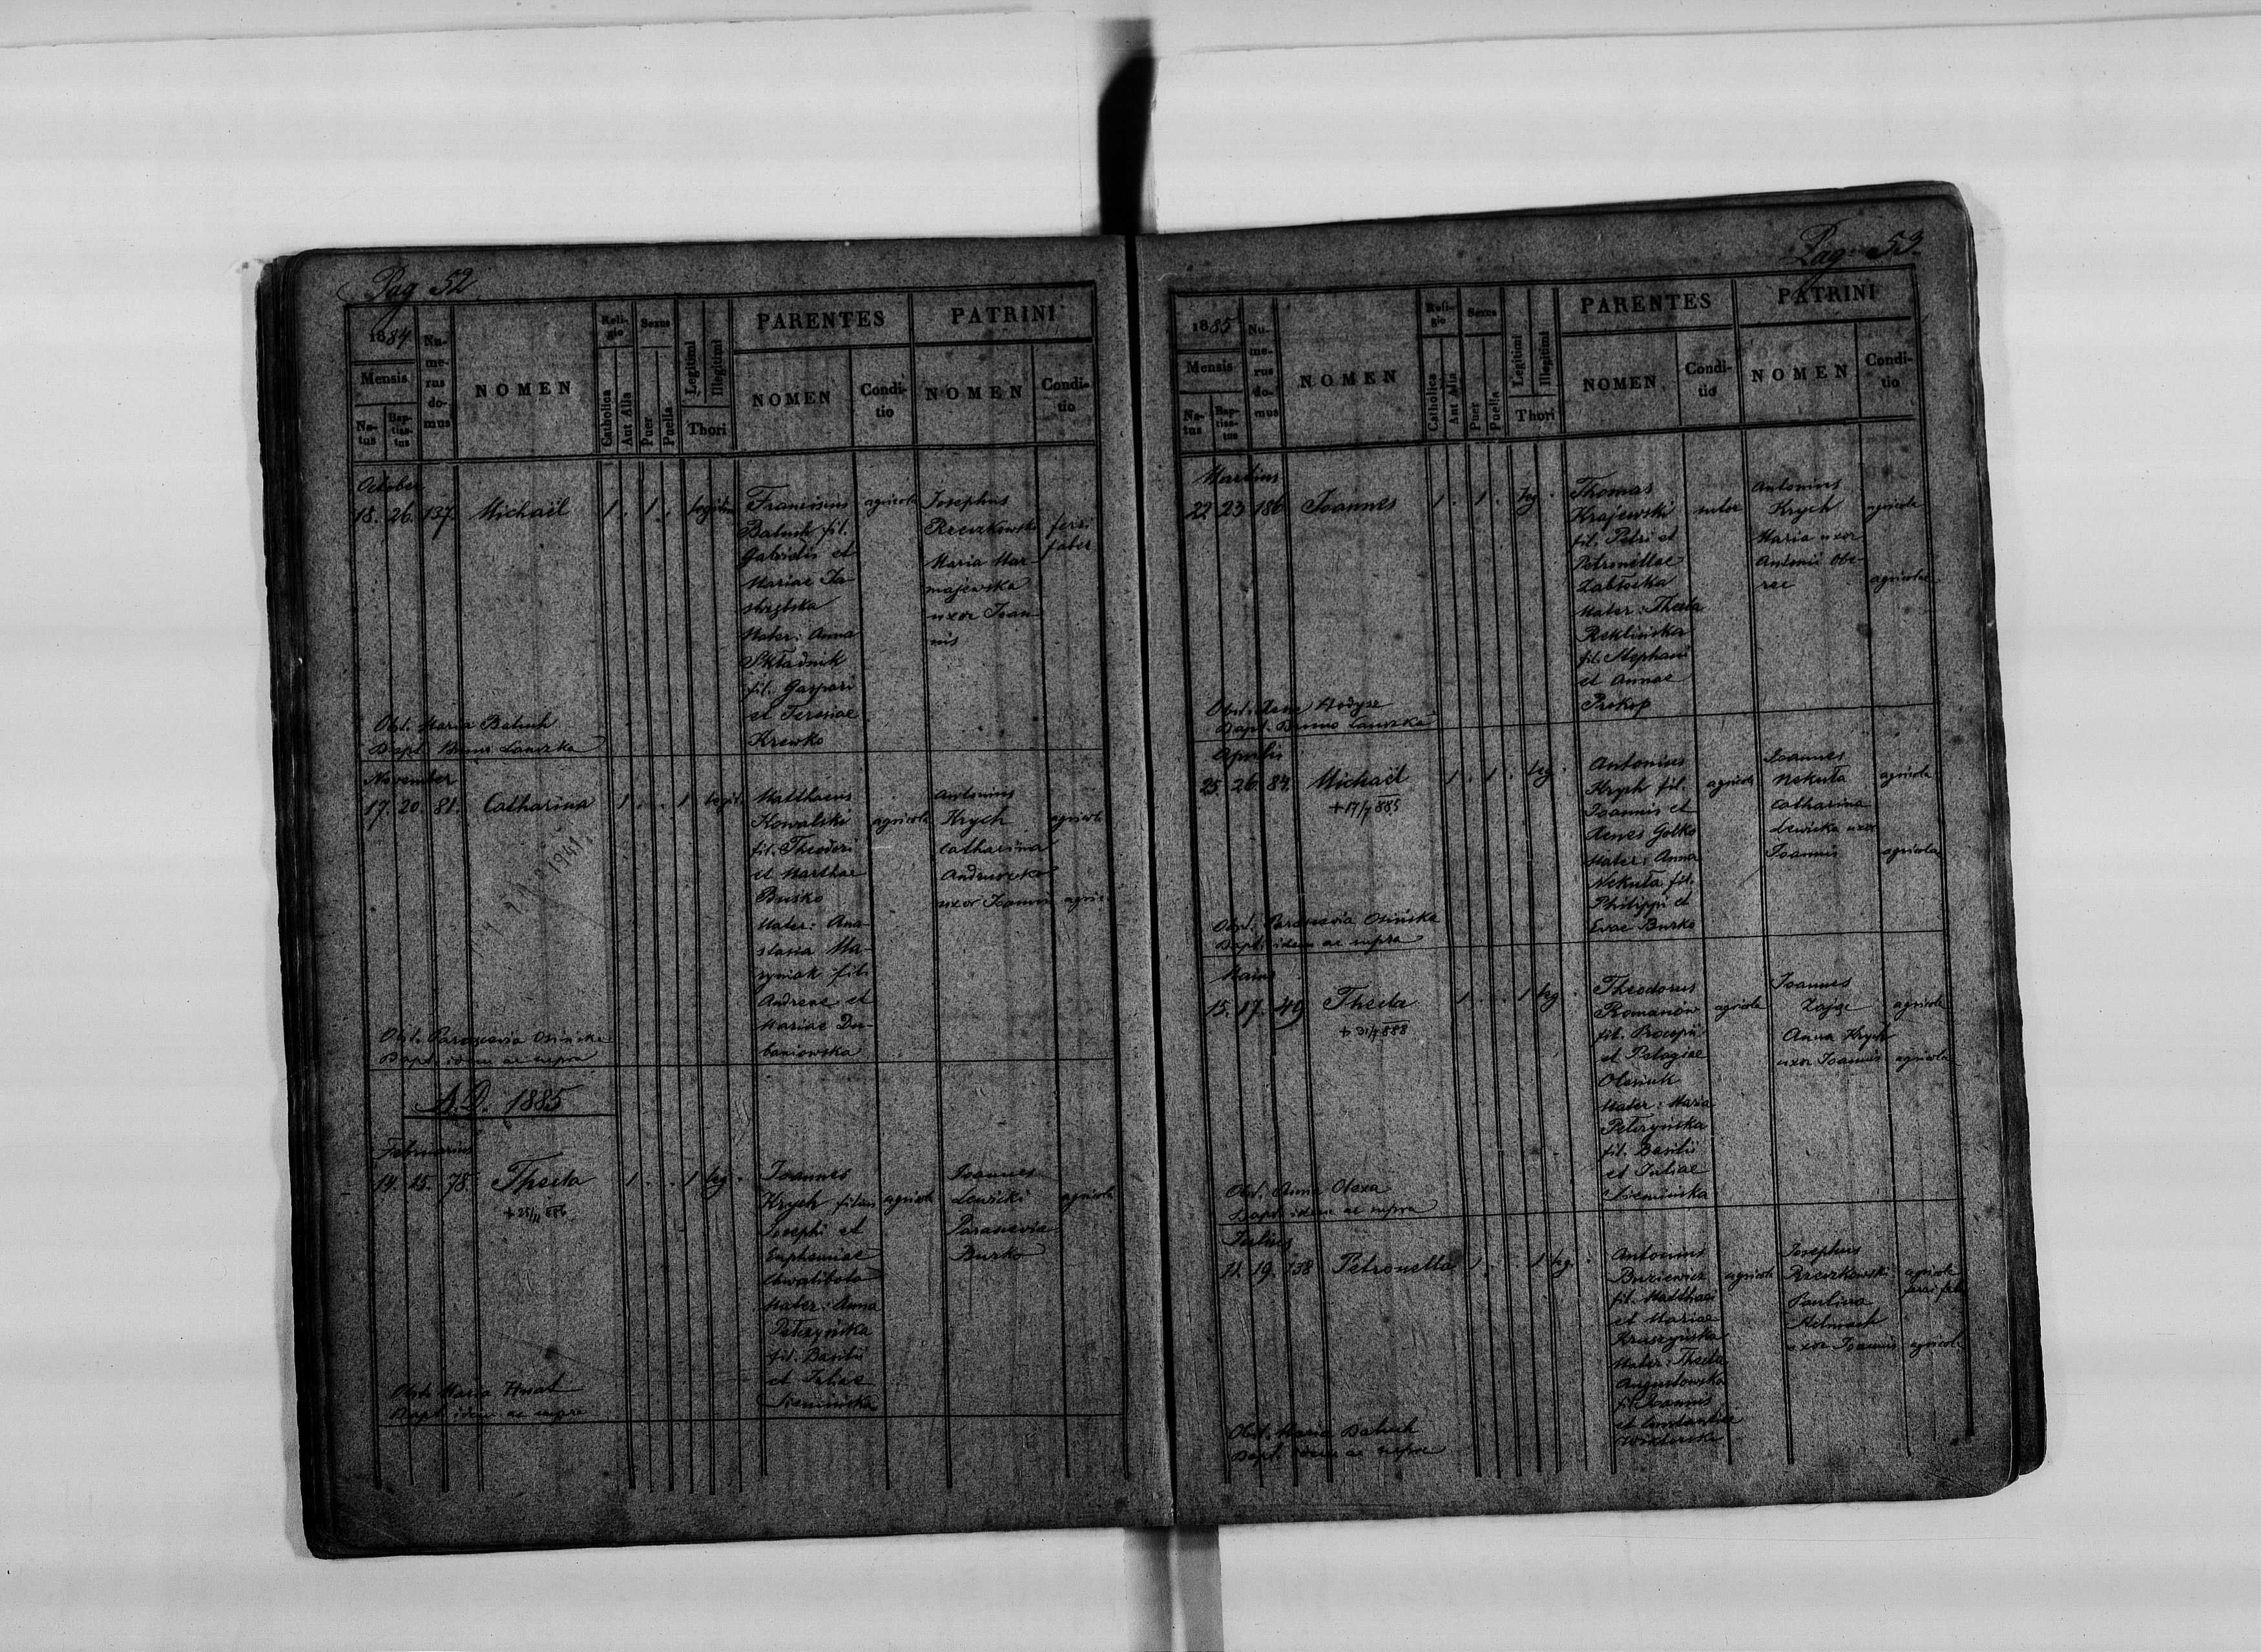 Pag 52
1884
Mensis
Na-
tus
Bap-
tisa-
tus
Nu-
me-
rus
do-
mus
NOMEN
Reli-
gio
Catholica
Aut Alia
Sexus
Puer
Puella
Legitimi
Illegitimi
Thori
PARENTES
NOMEN
Condi-
tio
PATRINI
NOMEN
Condi-
tio
October
18. 26. 137. Michaël 1 . 1 .
Franciscus
Batuch fil.
Gabrielis et
Mariae Ja-
strzębska
Mater: Anna
Składnik
fil. Gaspari
et Teresiae
Krewko
agricola
Josephus
Rzeczkowski
Maria Mar-
majewska
uxor Joan-
nis
ferri
faber
Obst. Maria Batuch
Bapt. Bruno Lanszka
November
17. 20. 81. Catharina 1 . . 1 legit.
1941
Matthaeus
Kowalski
fil. Theodori
et Marthae
Busko
Mater: Ana-
stasia Ma-
zyniak fil.
Andreae et
Mariae Du-
baniowska
agricola
Antonius
Krych
Catharina
uxor Joannis
agricola
agric.
Obst. Parascevia Osińska
Bapt. idem ac supra
A.D. 1885
Februarius
14. 15. 78. Thecla 1 . . 1 leg .
+ 25/11 886
Joannes
Krych filius
Josephi et
Euphemiae
Chwaliboła
Mater: Anna
Petczyńska
fil. Basilii
et Juliae
Siemińska
agricola
Joannes
Lewicki
Parascevia
Burko
agricola
Obst. Maria Husat
Bapt. idem ac supra
Pag. 53
1885
Mensis
Na-
tus
Bap-
tisa-
tus
Nu-
me-
rus
do-
mus
NOMEN
Reli-
gio
Catholica
Aut Alia
Sexus
Puer
Puella
Legitimi
Illegitimi
Thori
PARENTES
NOMEN
Condi-
tio
PATRINI
NOMEN
Condi-
tio
Martius
22 23 186 Joannes 1 . 1 . leg .
Thomas
Krajewski
fil. Petri et
Petronellae
Zabłocka
Mater: Thecla
Reklińska
fil. Stephani
et Annae
Prokop
sutor
Antonius
Krych
Maria uxor
Antonii Obe-
rec
agricola
agricolae
Obst. Xene Hodysz
Bapt. Bruno Lanszka
Aprilis
25. 26. 84. Michaël 1 . 1 . leg .
+ 17/7 885
Antonius
Krych fil.
Joannis et
Xenes Gołko
Mater: Anna
Nekuła fil.
Philippi et
Evae Burko
agricola
Joannes
Nekuła
Catharina
Lewicka uxor
Joannis
agricola
agricola
Obst. Parascevia Osińska
Bapt. idem ac supra
Maius
15. 17. 49 Thecla 1 . . 1 leg .
+ 31/7 888
Theodorus
Romanów
fil. Procopii
et Pelagiae
Olesiuk
Mater: Maria
Petczyńska
fil. Basilii
et Juliae
Siemińska
agricola
Joannes
Zając
Anna Krych
uxor Joannis
agricola
agricola
Obst. Anna Olexa
Bapt. idem ac supra
Julius
11. 19. 138 Petronella 1 . . 1 leg.
Antonius
Buziewicz
fil. Matthaei
et Mariae
Kruszyńska
Mater: Thecla
Augustowska
fil. Joannis
et Constantiae
agricola
Josephus
Rzeczkowski
Paulina
uxor Joannis
agricola
ferri fab.
agricola
Obst. Maria Batuch
Bapt. idem ac supra